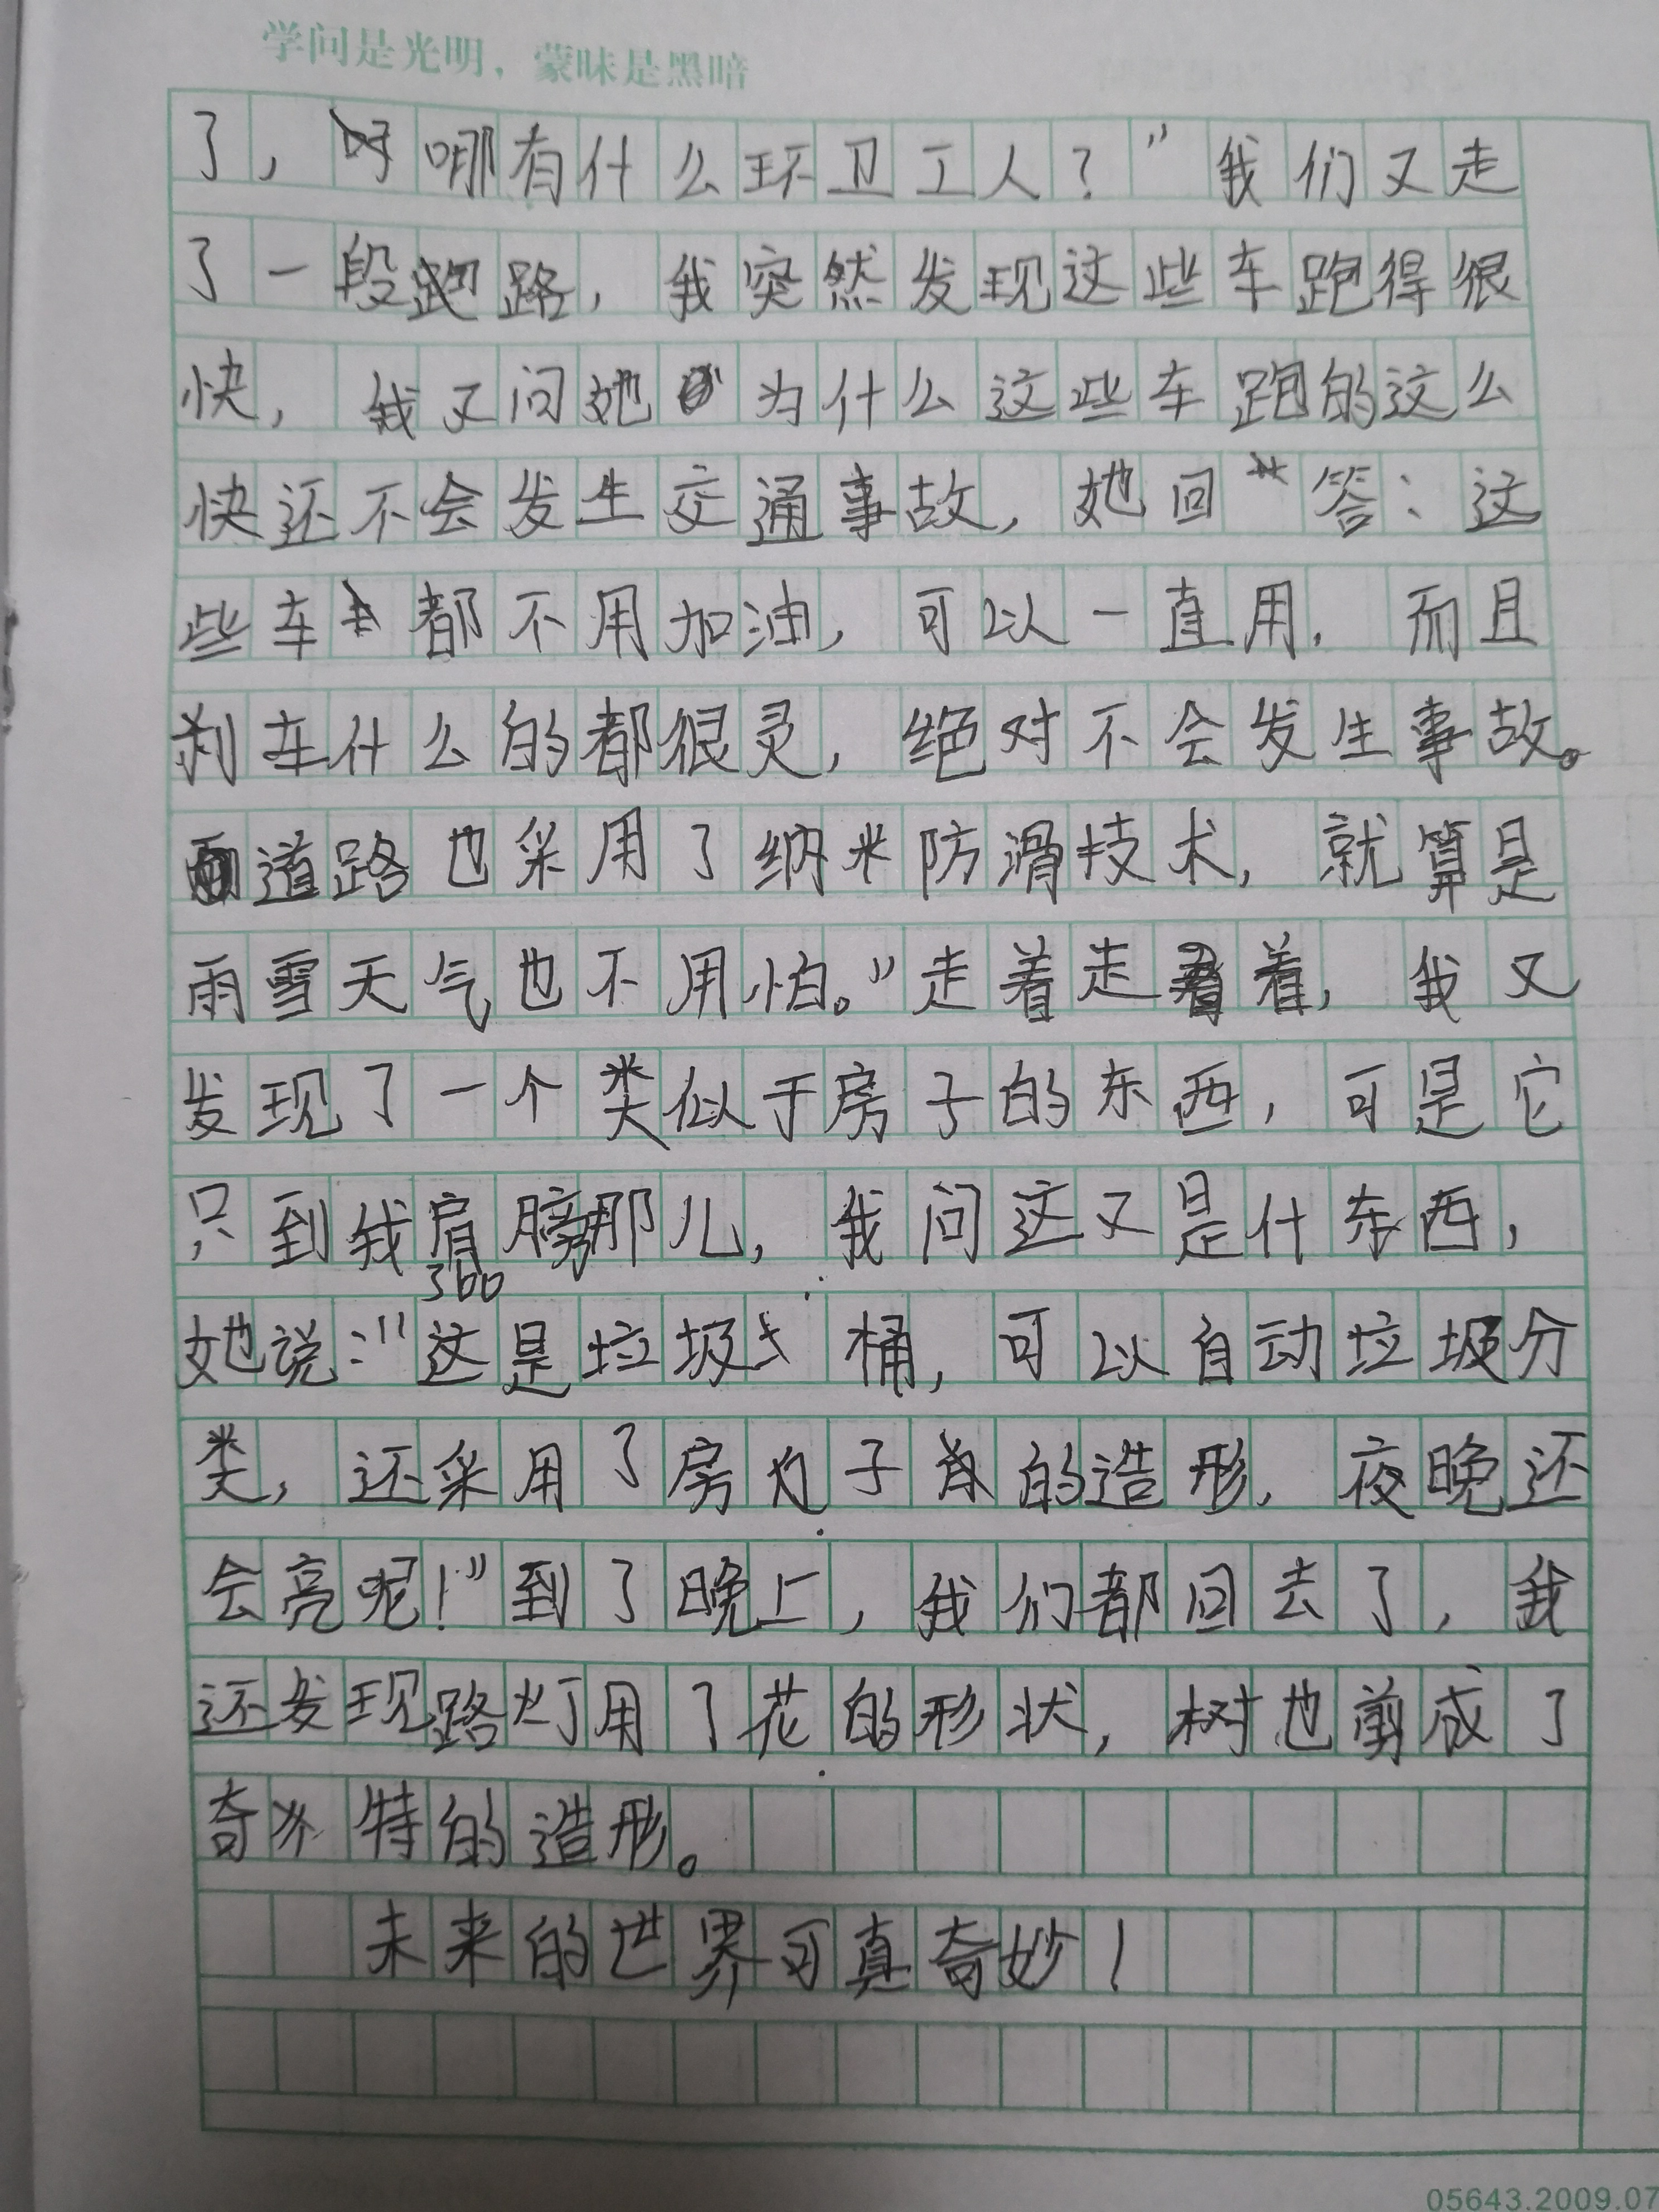 学问是光明，蒙昧是黑暗
了，哪有什么环卫工人？”我们又走
了一段路，我突然发现这些车跑得很
快，我又问她为什么这些车跑的这么
快还不会发生交通事故，她回答：这
些车都不用加油，可以一直用，而且
刹车什么的都很灵，绝对不会发生事故。
道路也采用了纳米防滑技术，就算是
雨雪天气也不用怕。”走着走着，我又
发现了一个类似于房子的东西，可是它
只到我肩膀那儿，我问这又是什东西，
300
她说：“这是垃圾桶，可以自动垃圾分
类，还采用了房子的造形，夜晚还
会亮呢！”到了晚上，我们都回去了，我
还发现路灯用了花的形状，树也剪成了
奇特的造形。
未来的世界可真奇妙！
05643.2009.07